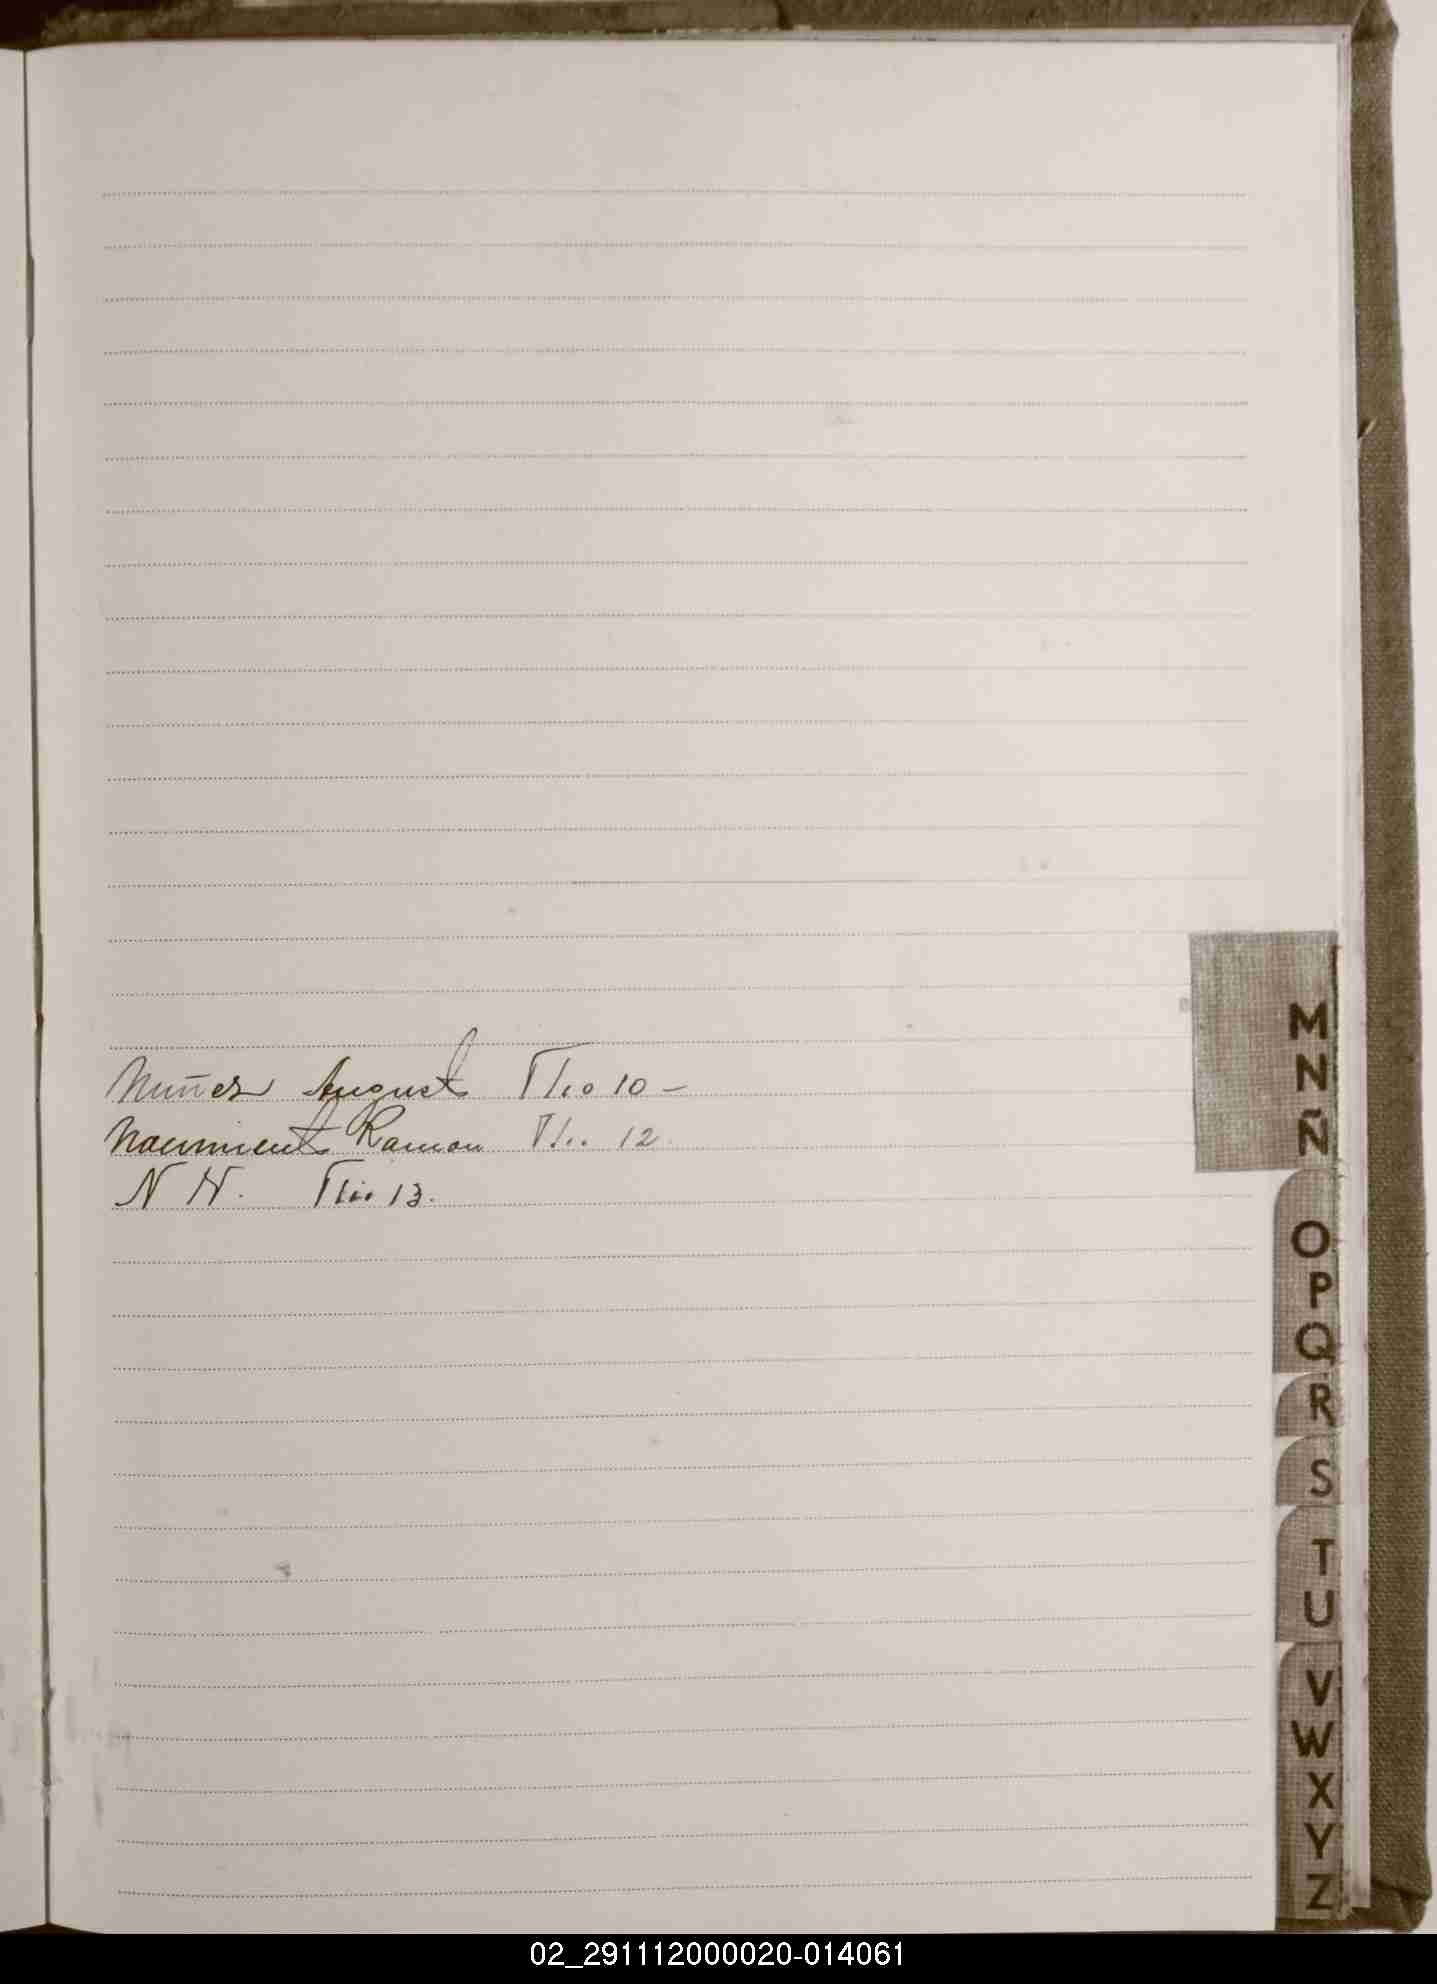 Nuñez August Flio 10 -
Nacimient Ramon Flio 12
N N. Flio 13.
M
N
Ñ
O
P
Q
R
S
T
U
V
W
X
Y
Z
02_291112000020-014061